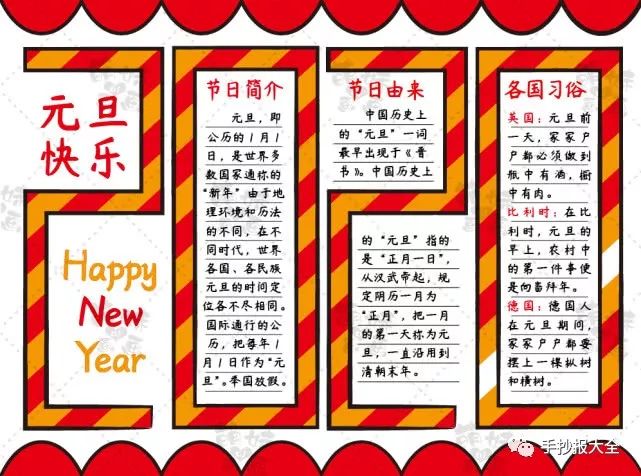 元旦
快乐
Happy
New
Year
节日简介
元旦，即
公历的1月1
日，是世界多
数国家通称的
“新年”由于地
理环境和历法
的不同，在不
同时代，世界
各国、各民族
元旦的时间定
位各不尽相同。
国际通行的公
历，把每年1
月1日作为“元
旦”。举国放假。
节日由来
中国历史上
的“元旦”一词
最早出现于《晋
书》。中国历史上
的“元旦”指的
是“正月一日”，
从汉武帝起，规
定阴历一月为
“正月”，把一月
的第一天称为元
旦，一直沿用到
清朝末年。
各国习俗
英国：元旦前
一天，家家户
户都必须做到
瓶中有酒，橱
中有肉。
比利时：在比
利时，元旦的
早上，农村中
的第一件事便
是向畜拜年。
德国：德国人
在元旦期间，
家家户户都要
摆上一棵枞树
和横树。
手抄报大全